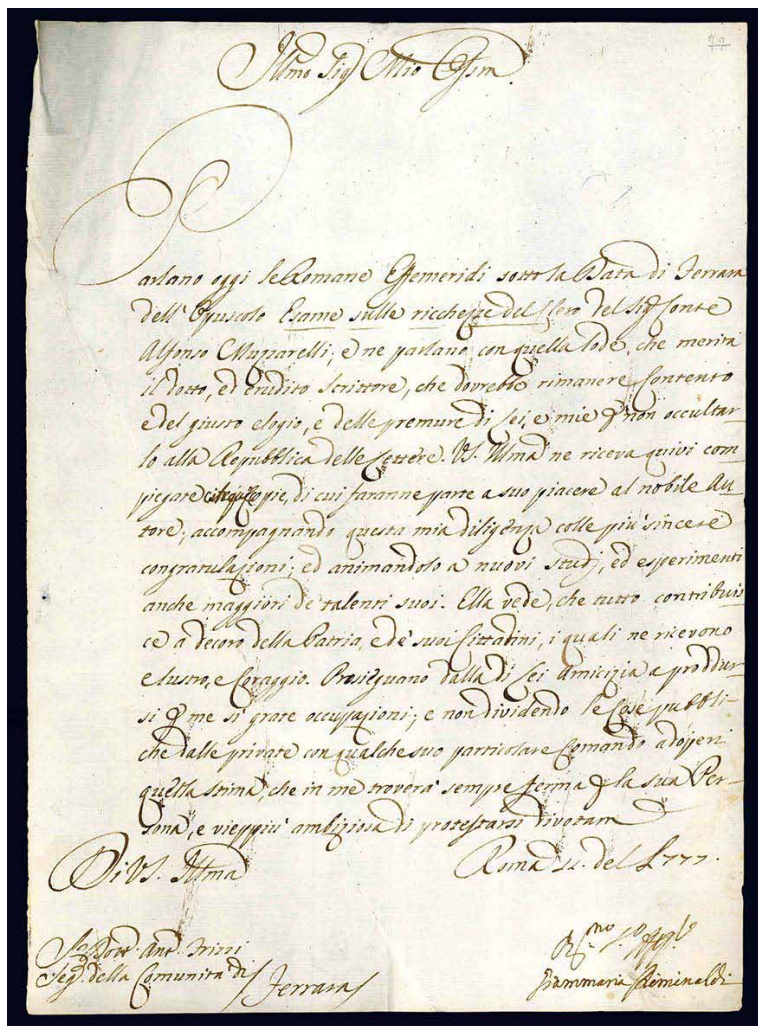 Illmo Sig Mio Ossmo
Parlano oggi le Romane Effemeridi sotto la Data di Ferrara
dell'Opuscolo Esame sulle ricchezze del Clero del Sig Conte
Alfonso Muzzarelli; e ne parlano con quella lode, che merita
il dotto, ed erudito Scrittore, che dovrebbe rimanere Contento
e del giusto elogio, e delle premure di Lei, e mie p non occultar-
lo alla Repubblica delle Lettere. VS. Illma ne riceva quivi com
piegate Copie, di cui faranne parte a suo piacere al nobile Au-
tore; accompagnando questa mia diligenza colle più sincere
congratulazioni; ed animandolo a nuovi studj, ed esperimenti
anche maggiori de' talenti suoi. Ella vede, che tutto contribuis-
ce a decoro della Patria, e de' suoi Cittadini, i quali ne ricevono
e lustro, e Coraggio. Prosieguano dalla di Lei Amicizia a produr-
si p me sì grate occupazioni; e non dividendo le Cose pubbli-
che dalle private con qualche suo particolare Comando adoperi
quella stima, che in me troverà sempre ferma p la sua Per-
sona, e vieppiù ambiziosa di protestarsi divotam
Di VS. Illma Roma del 1777.
Sig Dott. Ant. Frizzi
Seg della Comunità di Ferrara
Giammaria Riminaldi